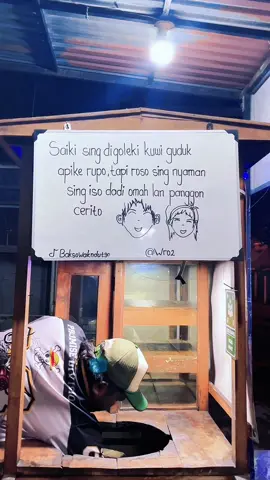 Saiki sing digoleki kuwi guduk
apike rupo, tapi roso sing nyaman
sing iso dadi omah lan panggon
cerito
@Wro2